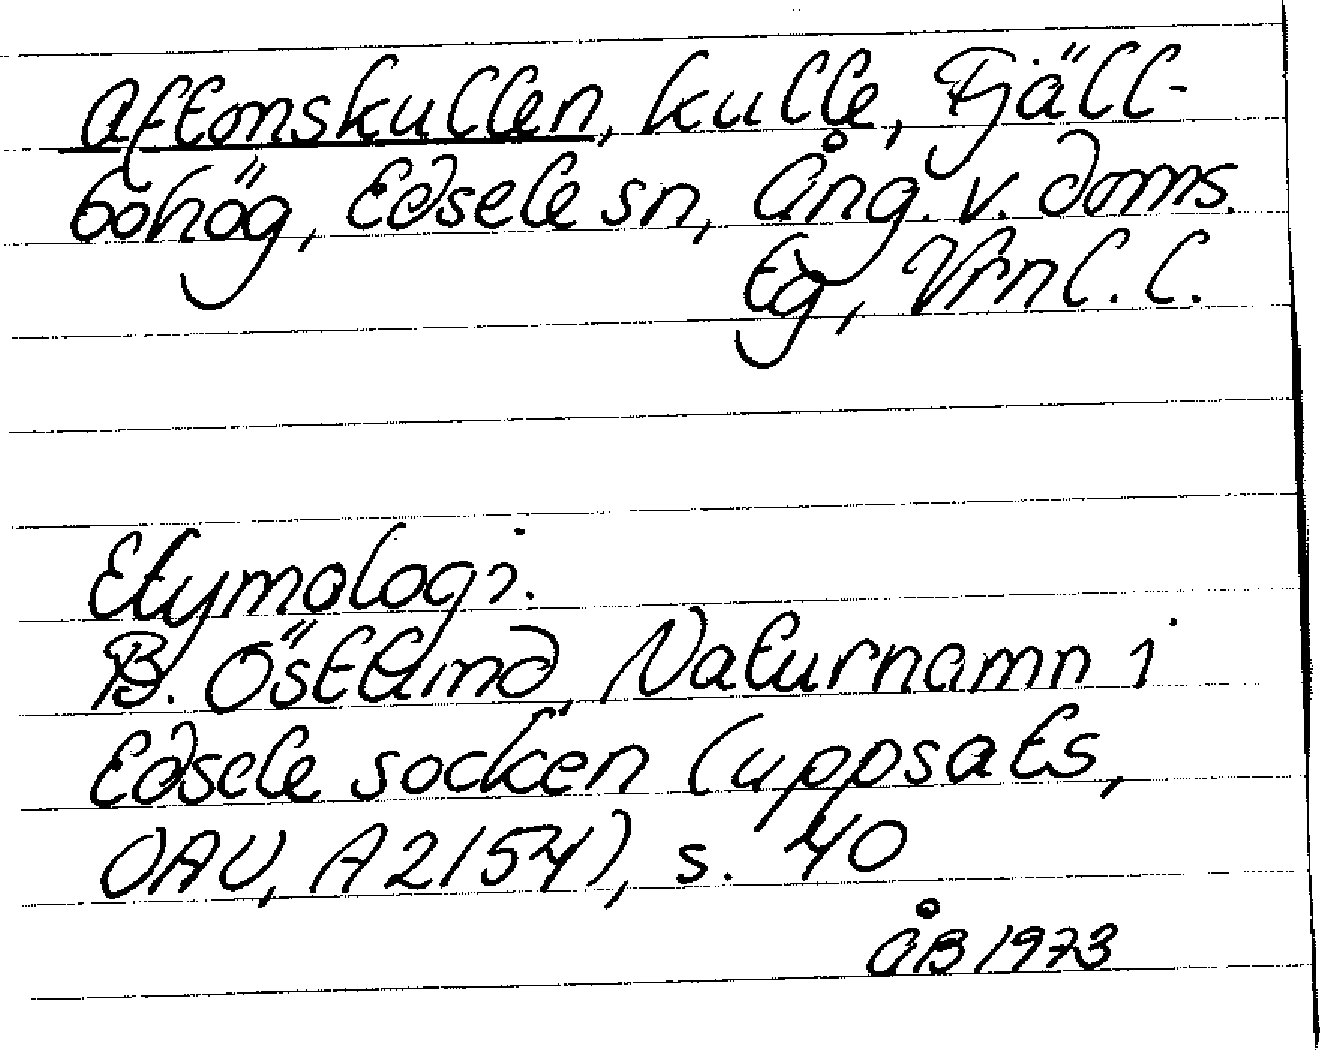 Aftonskullen, kulle, Fjäll-
bohög, Edsele sn, Ång. v. doms.
Eg, Vrnl. l.
Etymologi.
B. Östlund, Naturnamn i
Edsele socken (uppsats,
OAU, A2154), s. 40
ÅB 1973